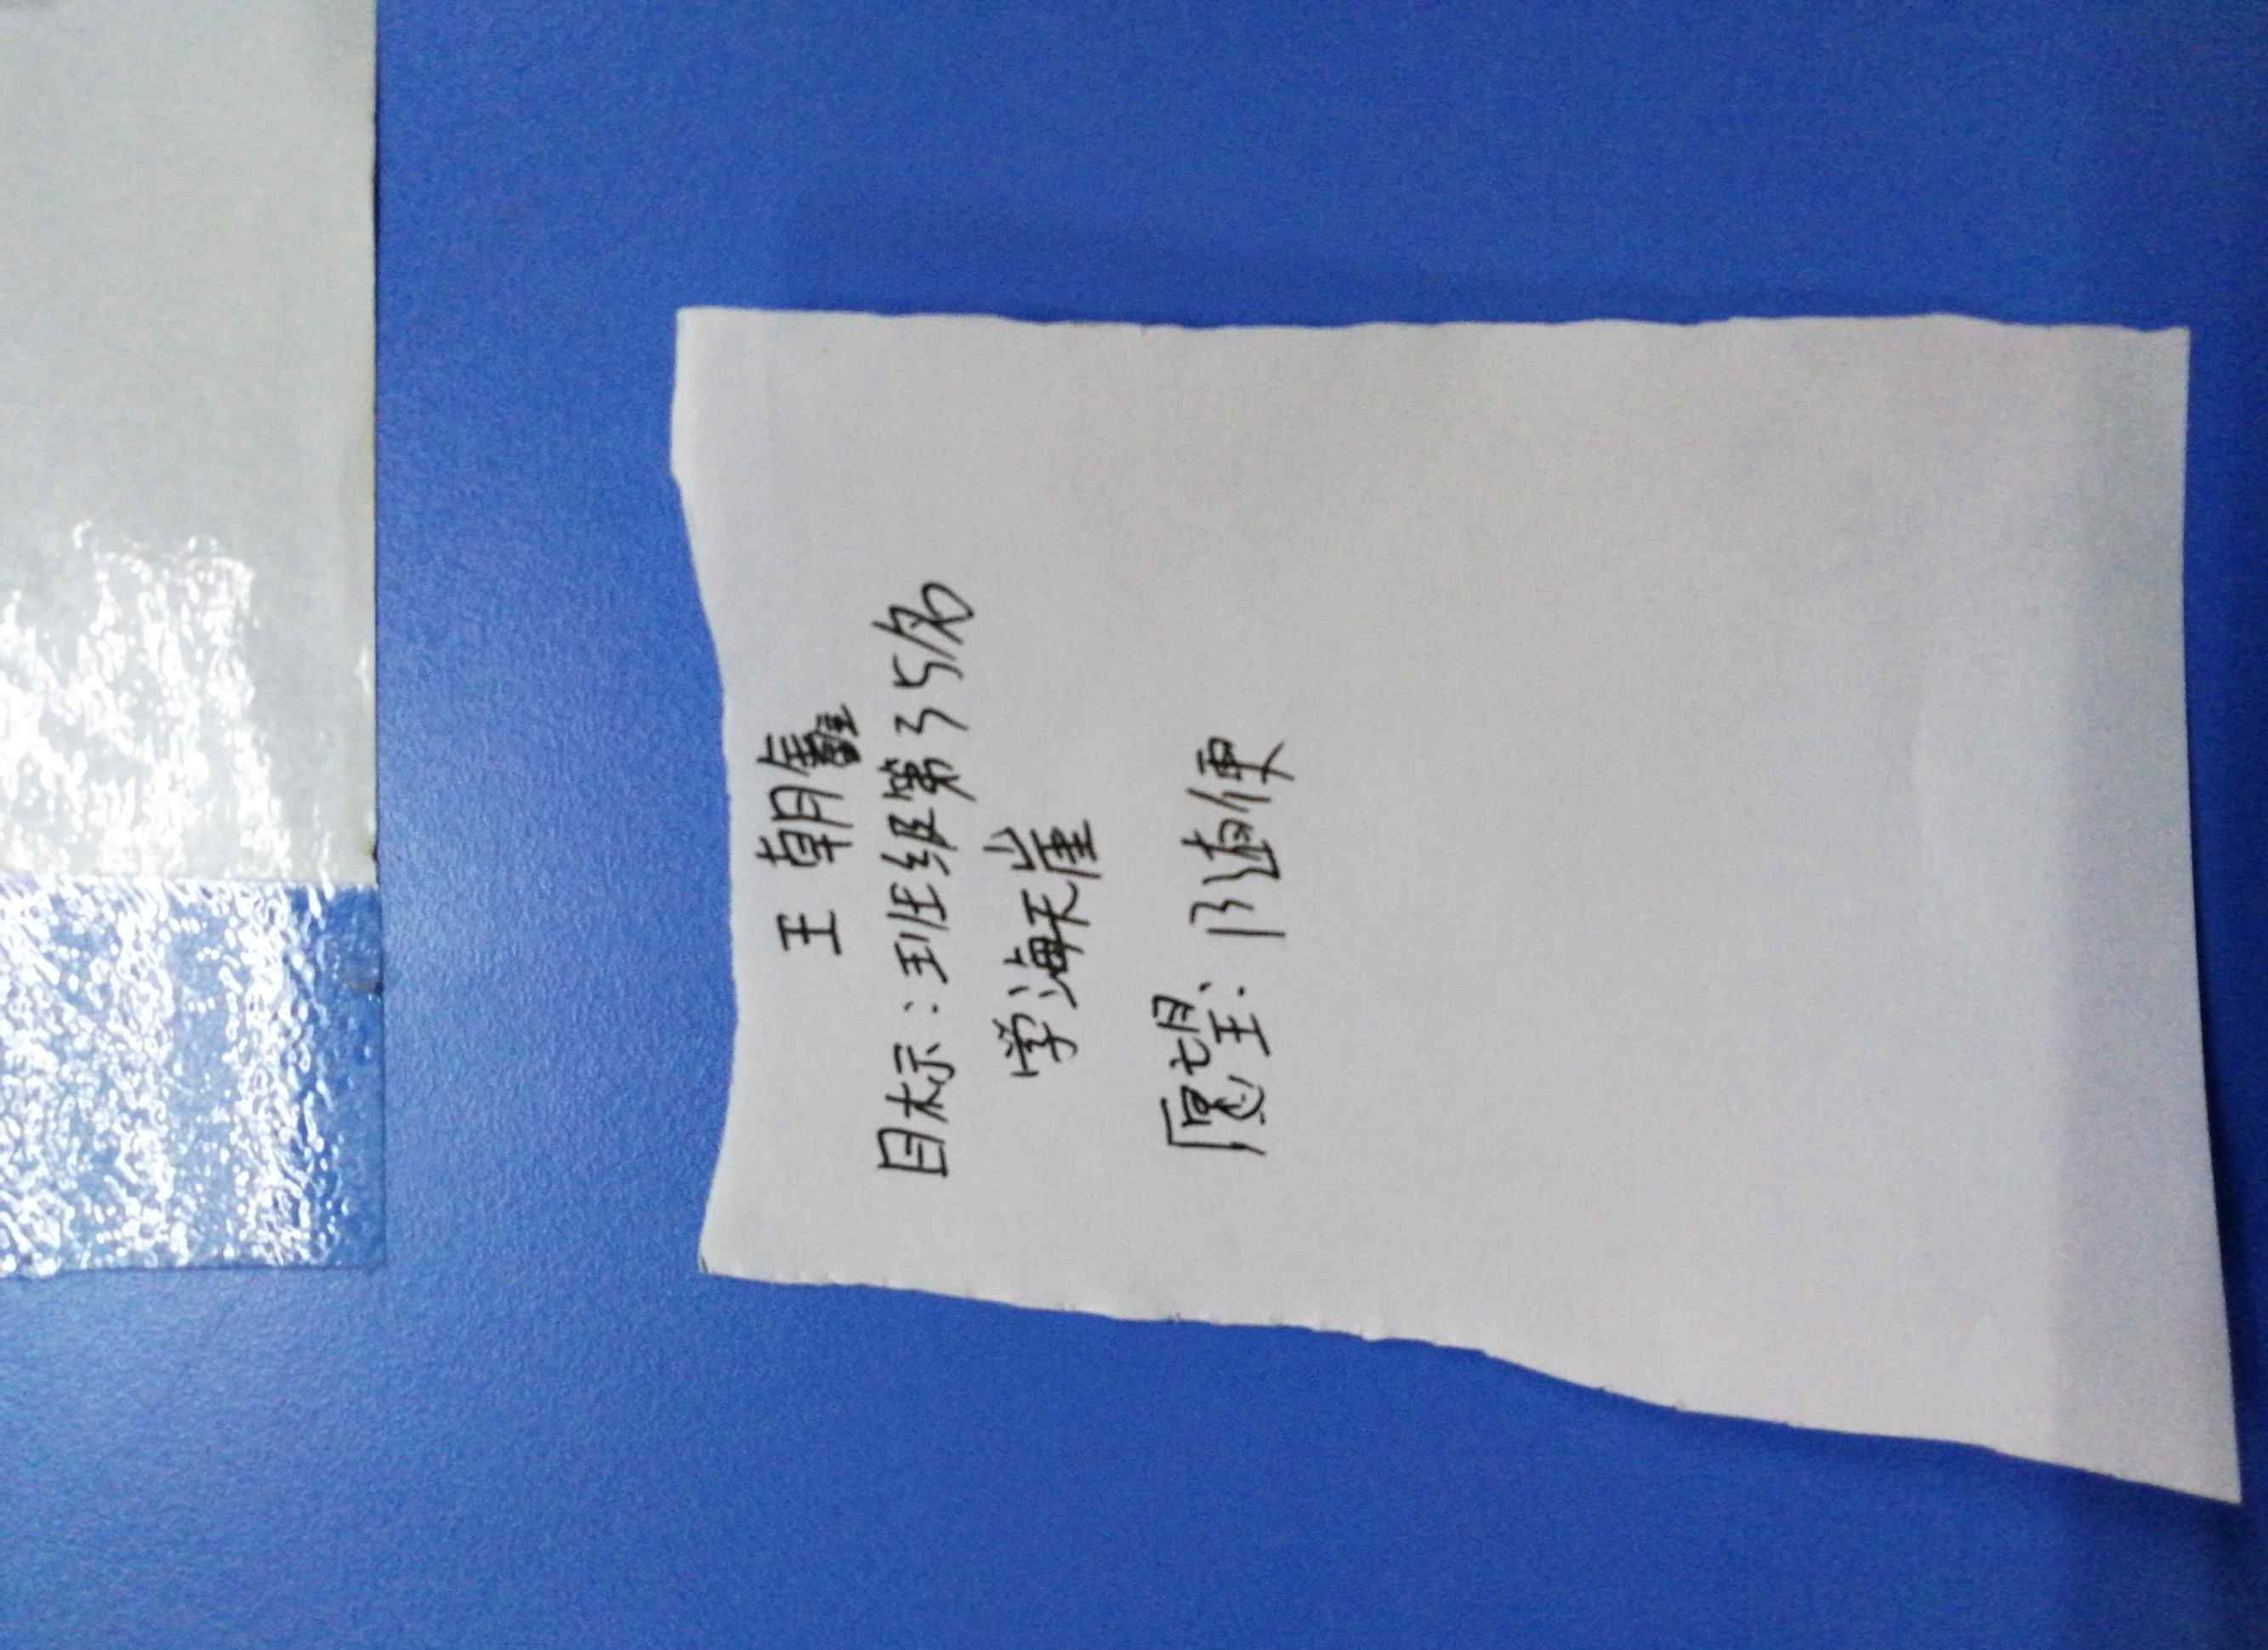 王朝鑫
目标:班级第35名
学海天崖
愿望:随便